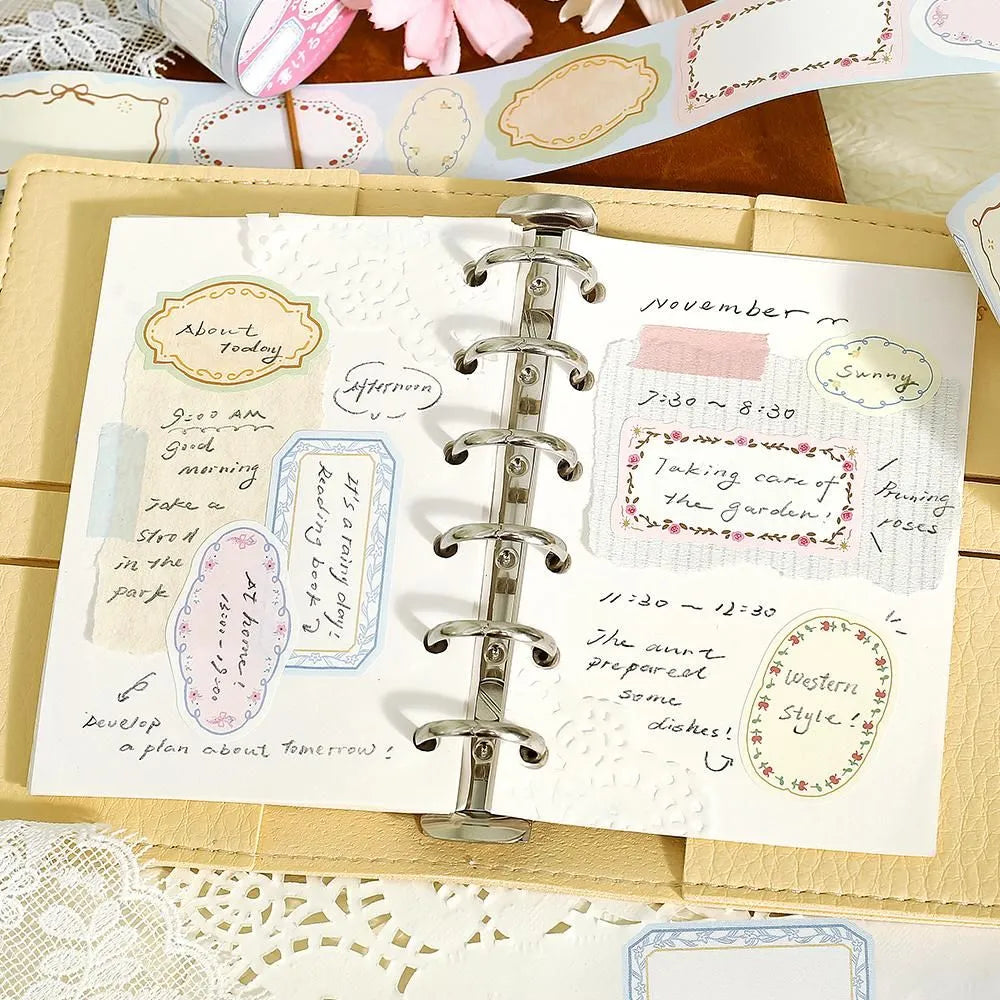 書ける
About
Today
9:00 AM
Good
morning
Take a
stroll
in the
park
Afternoon
It's a rainy day!
Reading book
At home!
Develop
a plan about Tomorrow!
November
Sunny
7:30 ~ 8:30
Taking care of
the garden!
Pruning
roses
11:30 ~ 12:30
The aunt
prepared
some
dishes!
Western
Style!